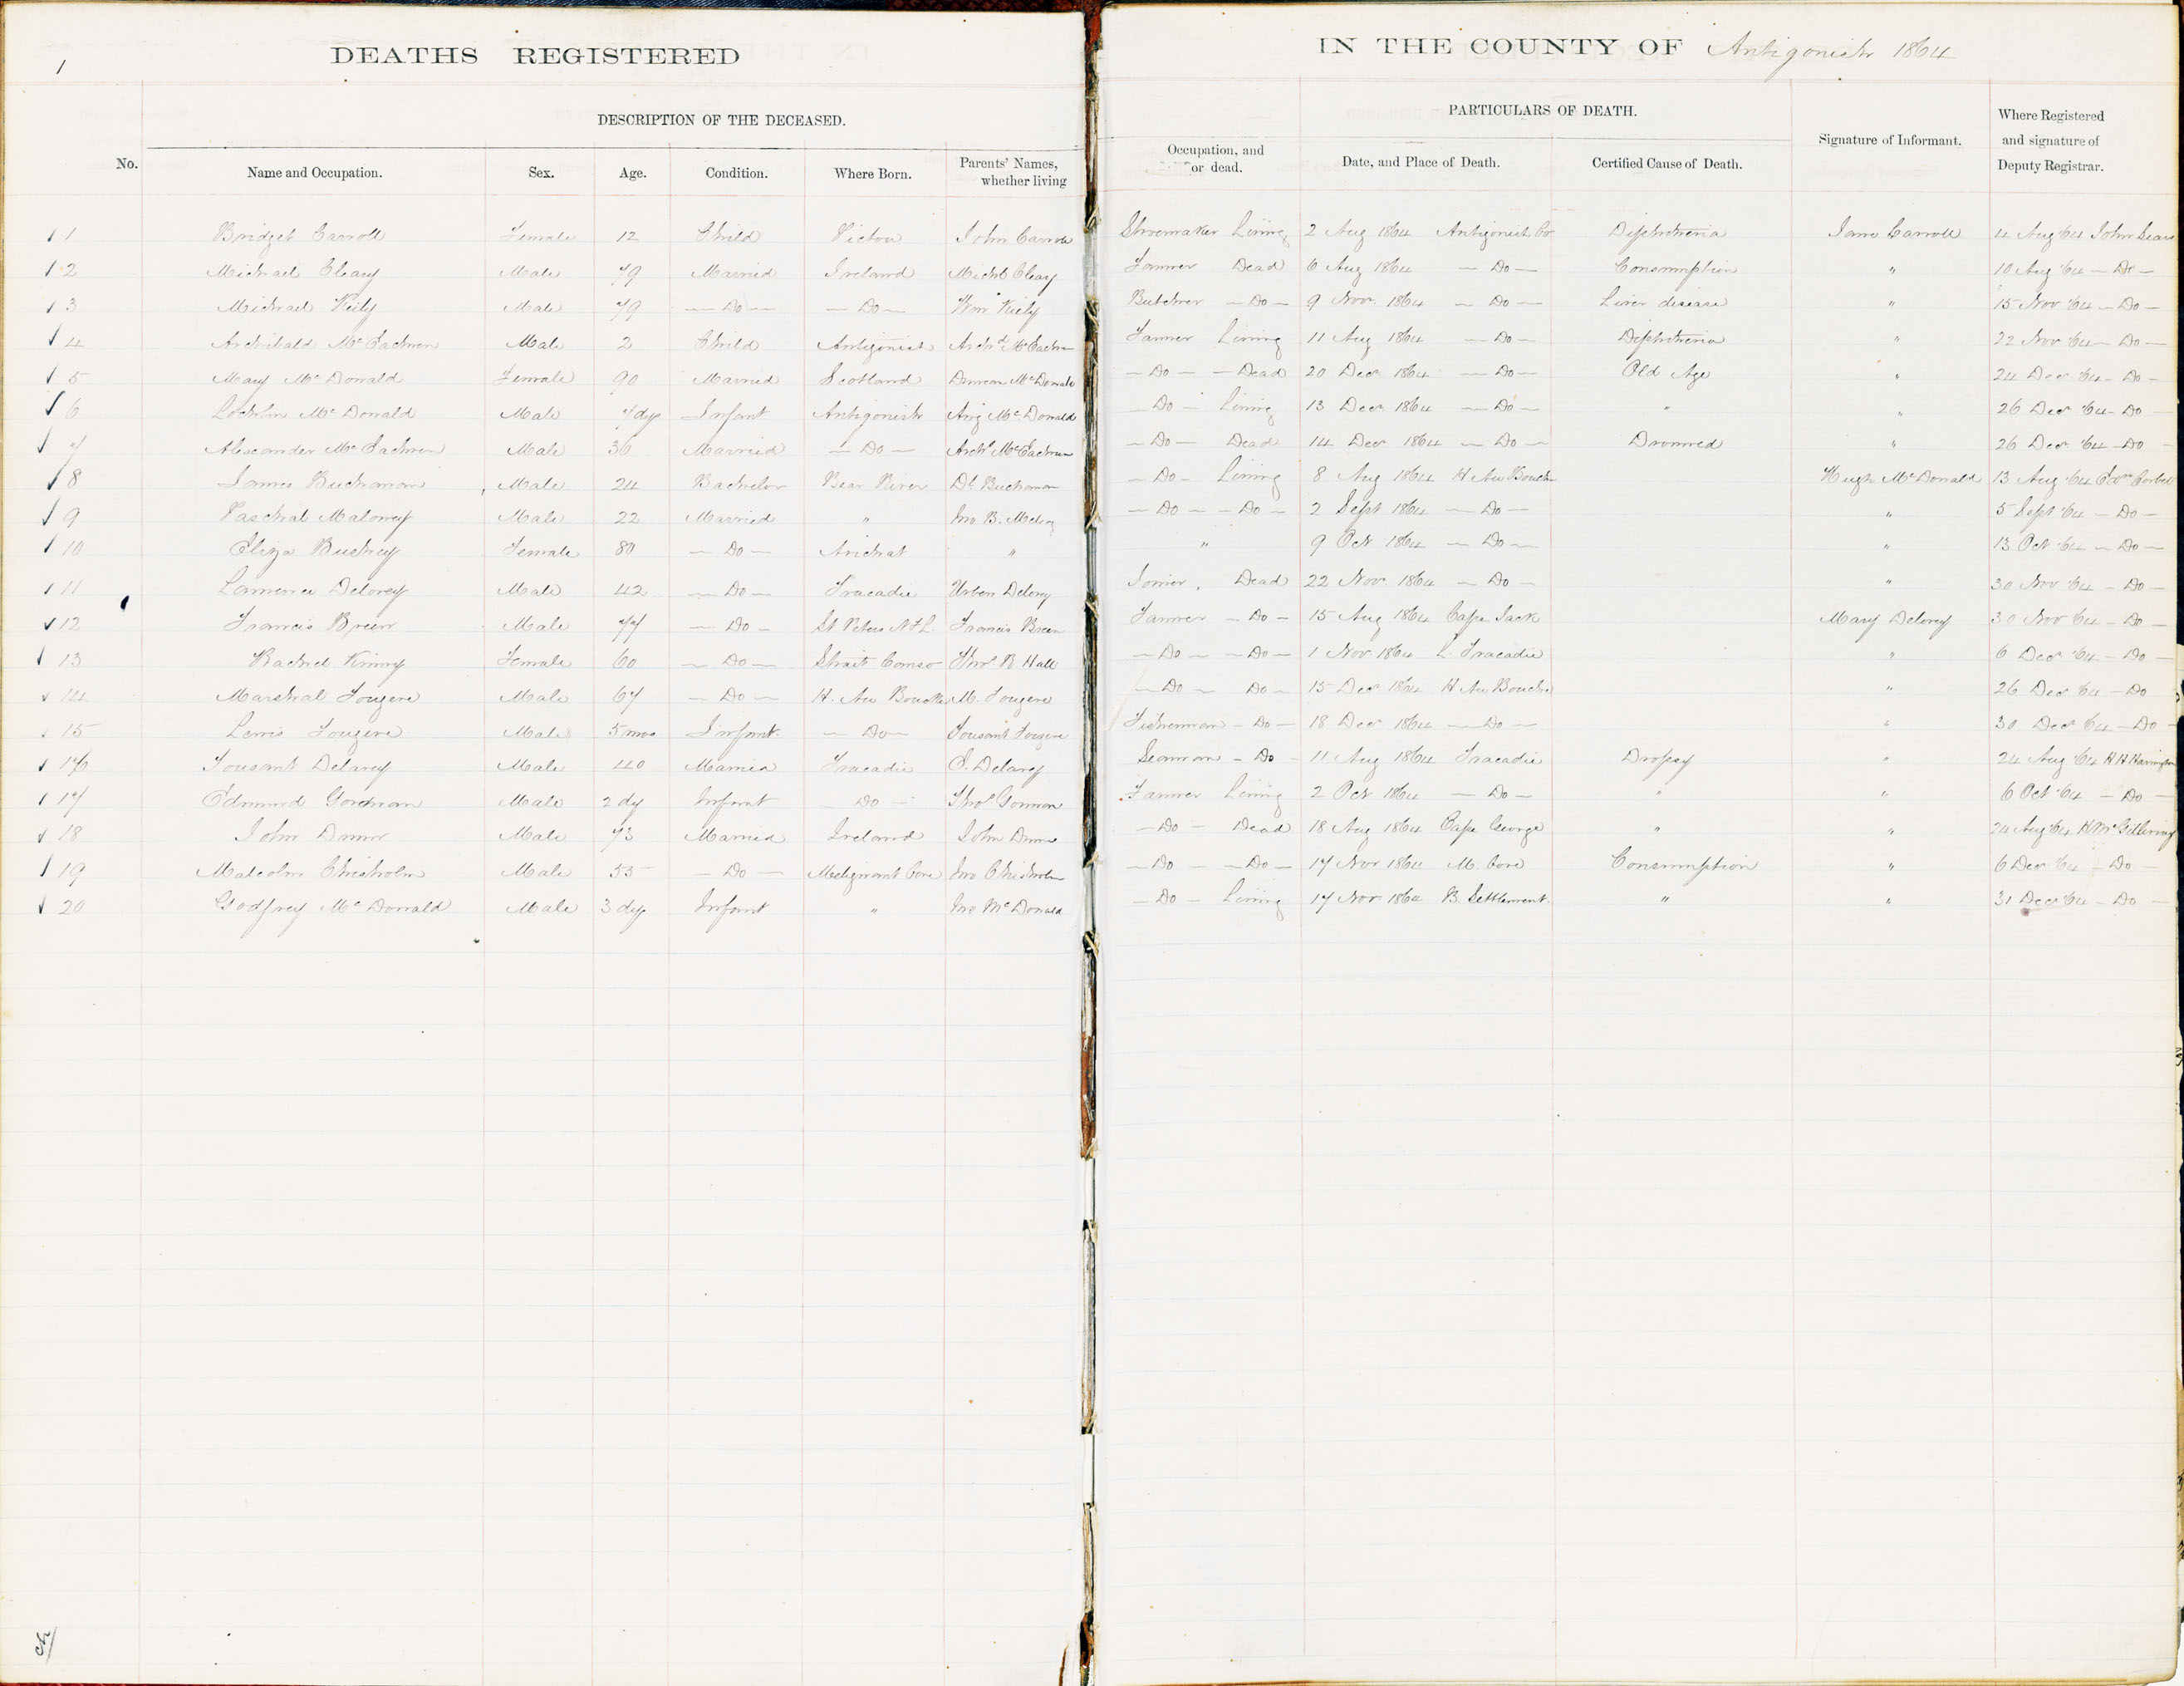 1
DEATHS REGISTERED IN THE COUNTY OF Antigonish 1864
DESCRIPTION OF THE DECEASED. PARTICULARS OF DEATH.
No. Name and Occupation. Sex. Age. Condition. Where Born. Parents' Names, whether living Occupation, and or dead. Date, and Place of Death. Certified Cause of Death. Signature of Informant. Where Registered and signature of Deputy Registrar.
1 Bridget Carroll Female 12 Child Pictou John Carroll Shoemaker Living 2 Aug 1864 Antigonish Co Diphtheria Jane Carroll 4 Aug '64 John Sears
2 Michael Cleary Male 79 Married Ireland Michl Cleary Farmer Dead 6 Aug 1864 — Do — Consumption " 10 Aug '64 — Do —
3 Michael Kiely Male 79 — Do — — Do — Wm Kiely Butcher — Do — 9 Nov. 1864 — Do — Liver disease " 15 Nov '64 — Do —
4 Archibald McEachren Male 2 Child Antigonish Archd McEachren Farmer Living 11 Aug 1864 — Do — Diphtheria " 22 Nov '64 — Do —
5 Mary McDonald Female 90 Married Scotland Duncan McDonald — Do — — Dead 20 Decr 1864 — Do — Old Age " 24 Decr '64 — Do —
6 Lochlin McDonald Male 7 dys Infant Antigonish Ang McDonald — Do — Living 13 Decr 1864 — Do — " " 26 Decr '64 — Do
7 Alexander McEachren Male 36 Married — Do — Archd McEachren — Do — Dead 14 Decr 1864 — Do — Drowned " 26 Decr '64 — Do —
8 James Buchanan Male 24 Bachelor Bear River Dl Buchanan — Do — Living 8 Aug 1864 H Au Bouche Hugh McDonald 13 Aug '64 Edm Corbet
9 Paschal Maloney Male 22 Married " Jno B. — Do — — Do — 2 Sept 1864 — Do — " 5 Sept '64 — Do —
10 Eliza Bushey Female 80 — Do — Arichat " " 9 Oct 1864 — Do — " 13 Oct '64 — Do —
11 Lawrence Delorey Male 42 — Do — Tracadie Urben Delorey Joiner, Dead 22 Nov. 1864 — Do — " 30 Nov '64 — Do —
12 Francis Breen Male 77 — Do — St Peters NFL. Francis Breen Farmer — Do — 15 Aug 1864 Cape Jack Mary Delorey 30 Nov '64 — Do —
13 Rachel Kinny Female 60 — Do — Strait Canso Thos R Hall — Do — — Do — 1 Nov 1864 L. Tracadie " 6 Decr '64 — Do —
14 Marshal Fougere Male 67 — Do — H. Au Bouche M. Fougere — Do — Do — 15 Decr 1864 H Au Bouche " 26 Decr '64 — Do
15 Lewis Fougere Male 5 mos Infant — Do — Tousant Fougere Fisherman — Do — 18 Decr 1864 — Do — " 30 Decr '64 — Do —
16 Tousant Delarey Male 40 Married Tracadie C. Delarey Seaman — Do — 11 Aug 1864 Tracadie Dropsy " 24 Aug '64 H H Harrington
17 Edmund Male 2 dy Infant — Do — Thos Farmer Living 2 Oct 1864 — Do — " " 6 Oct '64 — Do —
18 John Dunn Male 73 Married Ireland John Dunn — Do — Dead 18 Aug 1864 Cape George " " 24 Aug '64 H McGillivray
19 Malcolm Chisholm Male 55 — Do — Malignant Cove Jno Chisholm — Do — — Do — 17 Nov 1864 M. Cove Consumption " 6 Decr '64 — Do —
20 Godfrey McDonald Male 3 dys Infant " Jno McDonald — Do — Living 17 Nov 1864 B. Settlement. " " 31 Decr '64 — Do —